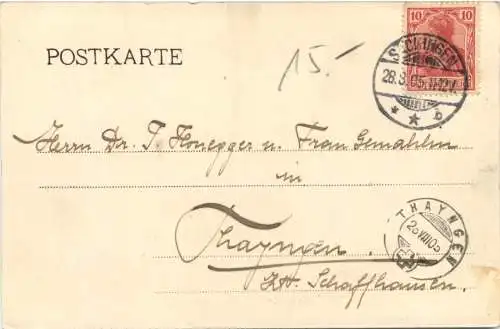 POSTKARTE
15.-
10 10
SÄCKINGEN
28.8.05.11-12V.
* * b
Herrn Dr. T. Honegger u. Frau Gemahlin
in
Thayngen.
THAYNGEN
28 VIII 05
Kt. Schaffhausen.